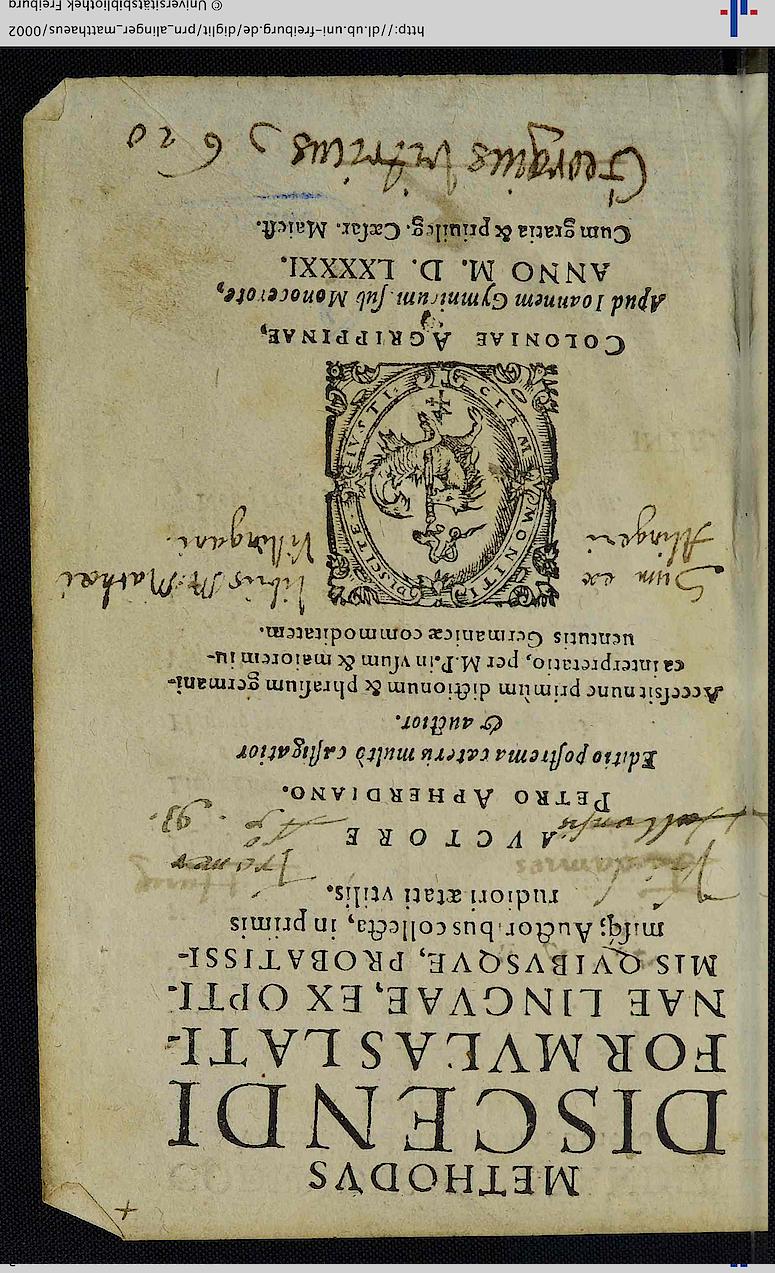 METHODVS
DISCENDI
FORMVLAS LATI-
NAE LINGVAE, EX OPTI-
MIS QVIBVSQVE, PROBATISSI-
misq́; Auctoribus collecta, in primis
rudiori ætati vtilis.
AVCTORE
PETRO APHERDIANO.
93.
Editio postrema cæteris multò castigatior
& auctior.
Accessit nunc primùm dictionum & phrasium germani-
ca interpretatio, per M.P. in vsum & maiorem iu-
uentutis Germanicæ commoditatem.
Sum ex libris M. Mathæi
Alingeri Vilingani.
DISCITE IVSTICIEM MONITI
COLONIAE AGRIPPINAE,
Apud Ioannem Gymnicum sub Monocerote,
ANNO M. D. LXXXXI.
Cum gratia & priuileg. Cæsar. Maiest.
Georgius Vitrius 1620
http://dl.ub.uni-freiburg.de/diglit/prn_alinger_matthaeus/0002
© Universitätsbibliothek Freiburg